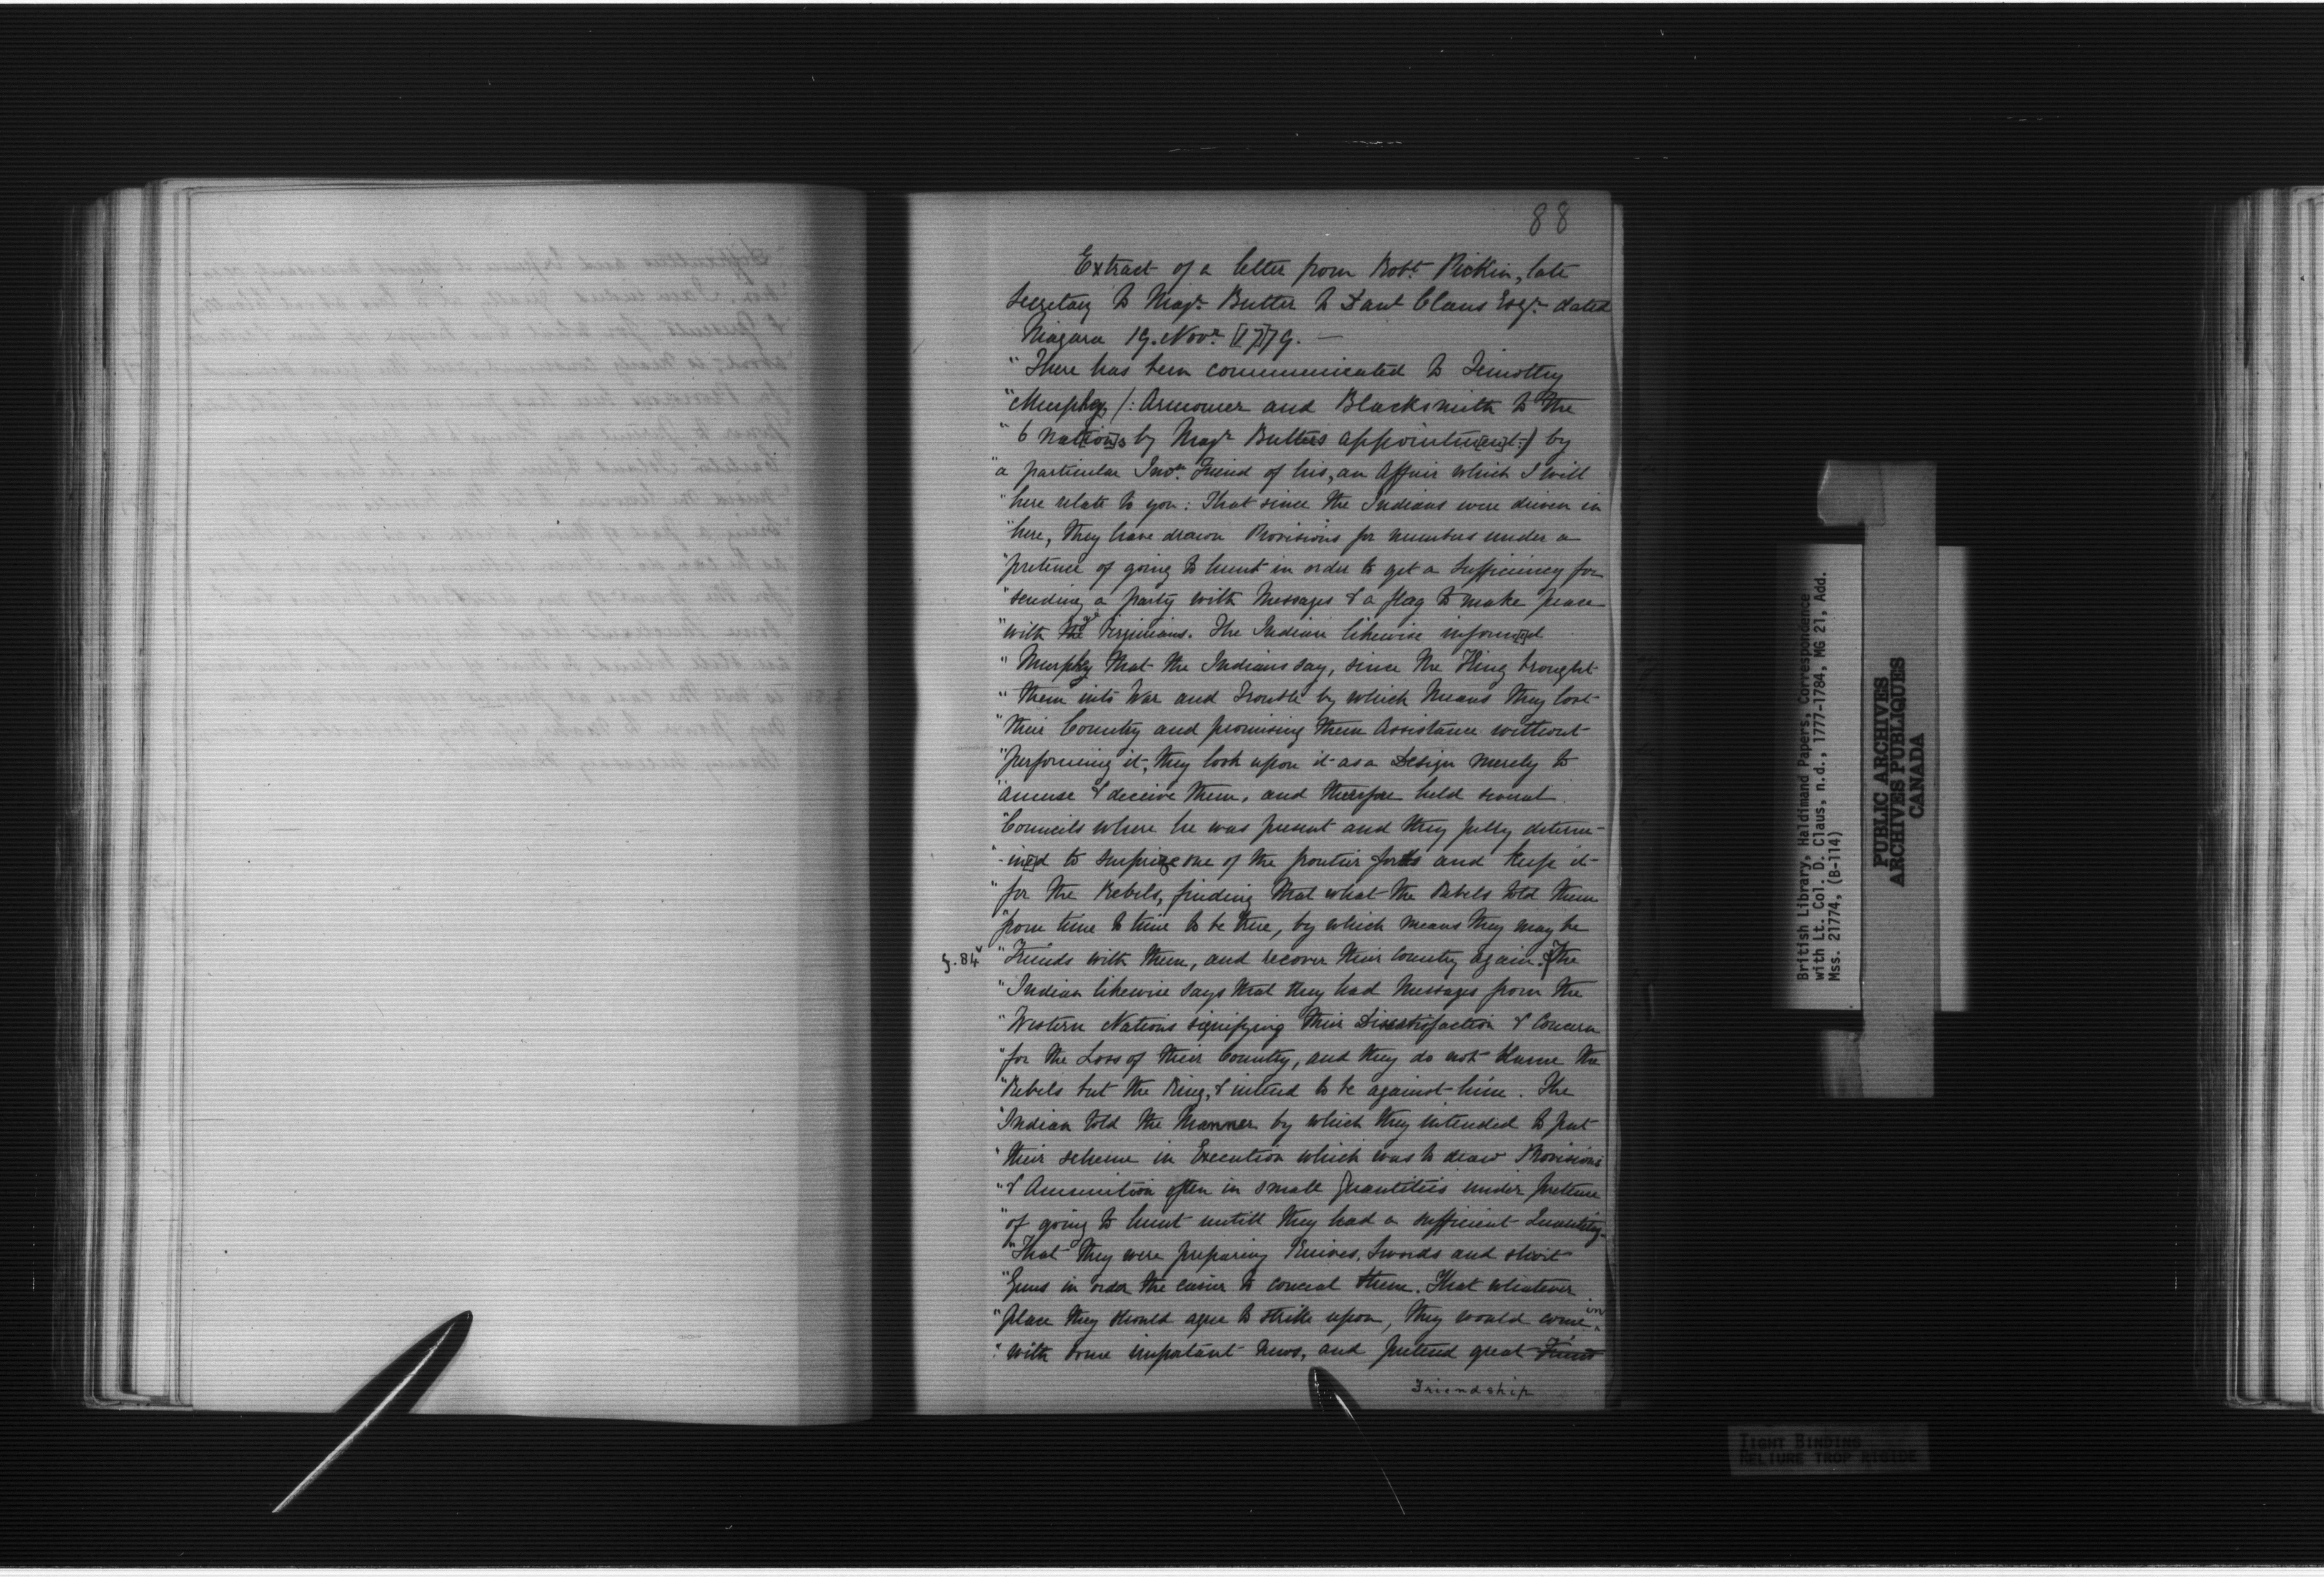 88
Extract of a letter from Robt. Pickin, late
Secretary to Majr. Butler to Danl Claus Esqr. dated
Niagara 19. Novr. [17]79. —
"There has been communicated to Timothy
"Murphy /: Armourer and Blacksmith to the
"6 Nat[ion]s by Majr Butlers appointm[en]t :/ by
"a particular Indn. Friend of his, an Affair which I will
"here relate to you: That since the Indians were driven in
"here, they have drawn Provisions for numbers under a
"pretence of going to hunt in order to get a Sufficiency for
"sending a party with Messages & a flag to make peace
"with ye Virginians. The Indian likewise inform[e]d
"Murphy that the Indians say, since the King brought
"them into War and Trouble by which Means they lost
"their Country and promising them Assistance without
"performing it, they look upon it as a Design merely to
"amuse & deceive them, and therefore held several
"Councils where he was present and they fully determ-
"-in[e]d to surprize one of the frontier forts and keep it
"for the Rebels, finding that what the Rebels told them
"from time to time to be true, by which means they may be
f. 84v "Friends with them, and recover their Country again. The
"Indian likewise says that they had Messages from the
"Western Nations signifying their Dissatisfaction & Concern
"for the Loss of their Country, and they do not blame the
"Rebels but the King, & intend to be against him. The
"Indian told the Manner by which they intended to put
"their scheme in Execution which was to draw Provisions
"& Amunition often in small Quantities under pretence
"of going to hunt untill they had a sufficient Quantity.
"That they were preparing Knives, Swords and short
"Guns in order the easier to conceal them. That whatever
"place they should agree to strike upon, they would come in
"with some important news, and pretend great Friend
Friendship
British Library, Haldimand Papers, Correspondence
with Lt. Col. D. Claus, n.d., 1777-1784, MG 21, Add.
Mss. 21774, (B-114)
PUBLIC ARCHIVES
ARCHIVES PUBLIQUES
CANADA
TIGHT BINDING
RELIURE TROP RIGIDE